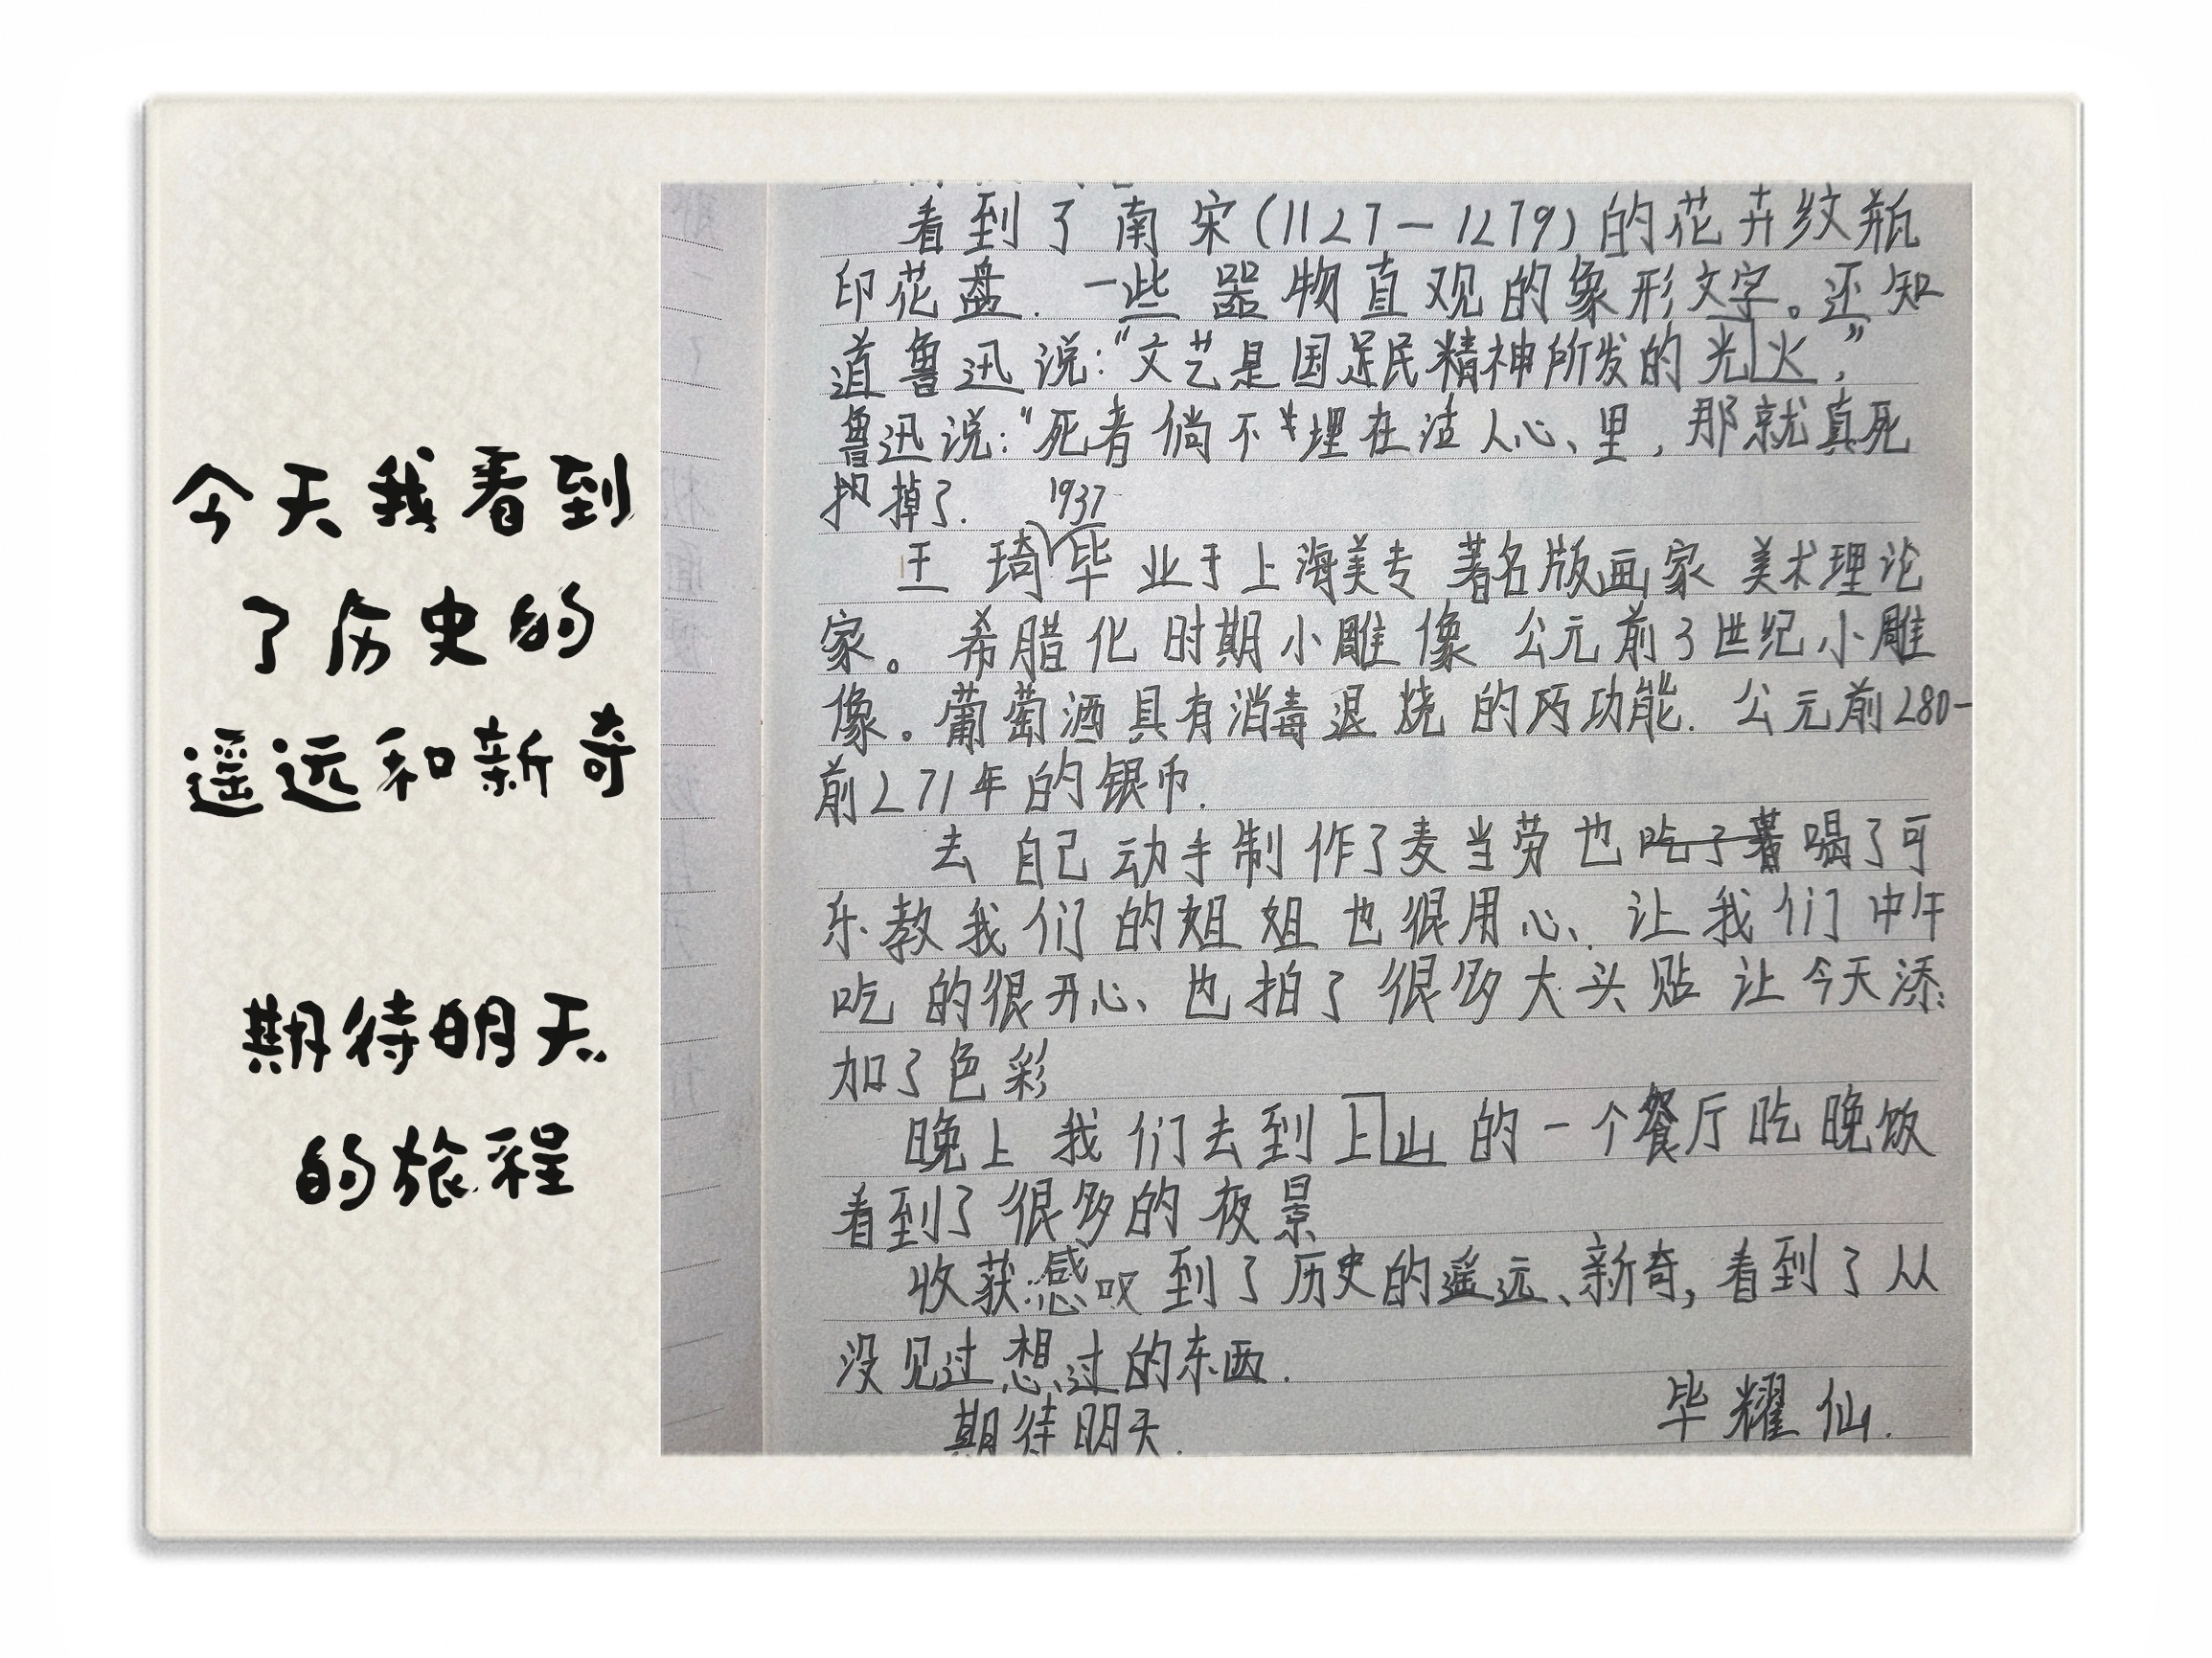 今天我看到
了历史的
遥远和新奇
期待明天
的旅程
看到了南宋(1127-1279)的花卉纹瓶
印花盘.一些器物直观的象形文字。还知
道鲁迅说:“文艺是国民精神所发的光火,”
鲁迅说:“死者倘不埋在活人心里,那就真死
掉了.
1937
王琦毕业于上海美专 著名版画家 美术理论
家。希腊化时期小雕像 公元前3世纪小雕
像。葡萄酒具有消毒退烧的功能.公元前280-
前271年的银币.
去自己动手制作了麦当劳也喝了可
乐教我们的姐姐也很用心、让我们中午
吃的很开心、也拍了很多大头贴 让今天添
加了色彩
晚上我们去到上山的一个餐厅吃晚饭
看到了很多的夜景
收获:感叹到了历史的遥远、新奇,看到了从
没见过想过的东西.
期待明天.
毕耀仙.